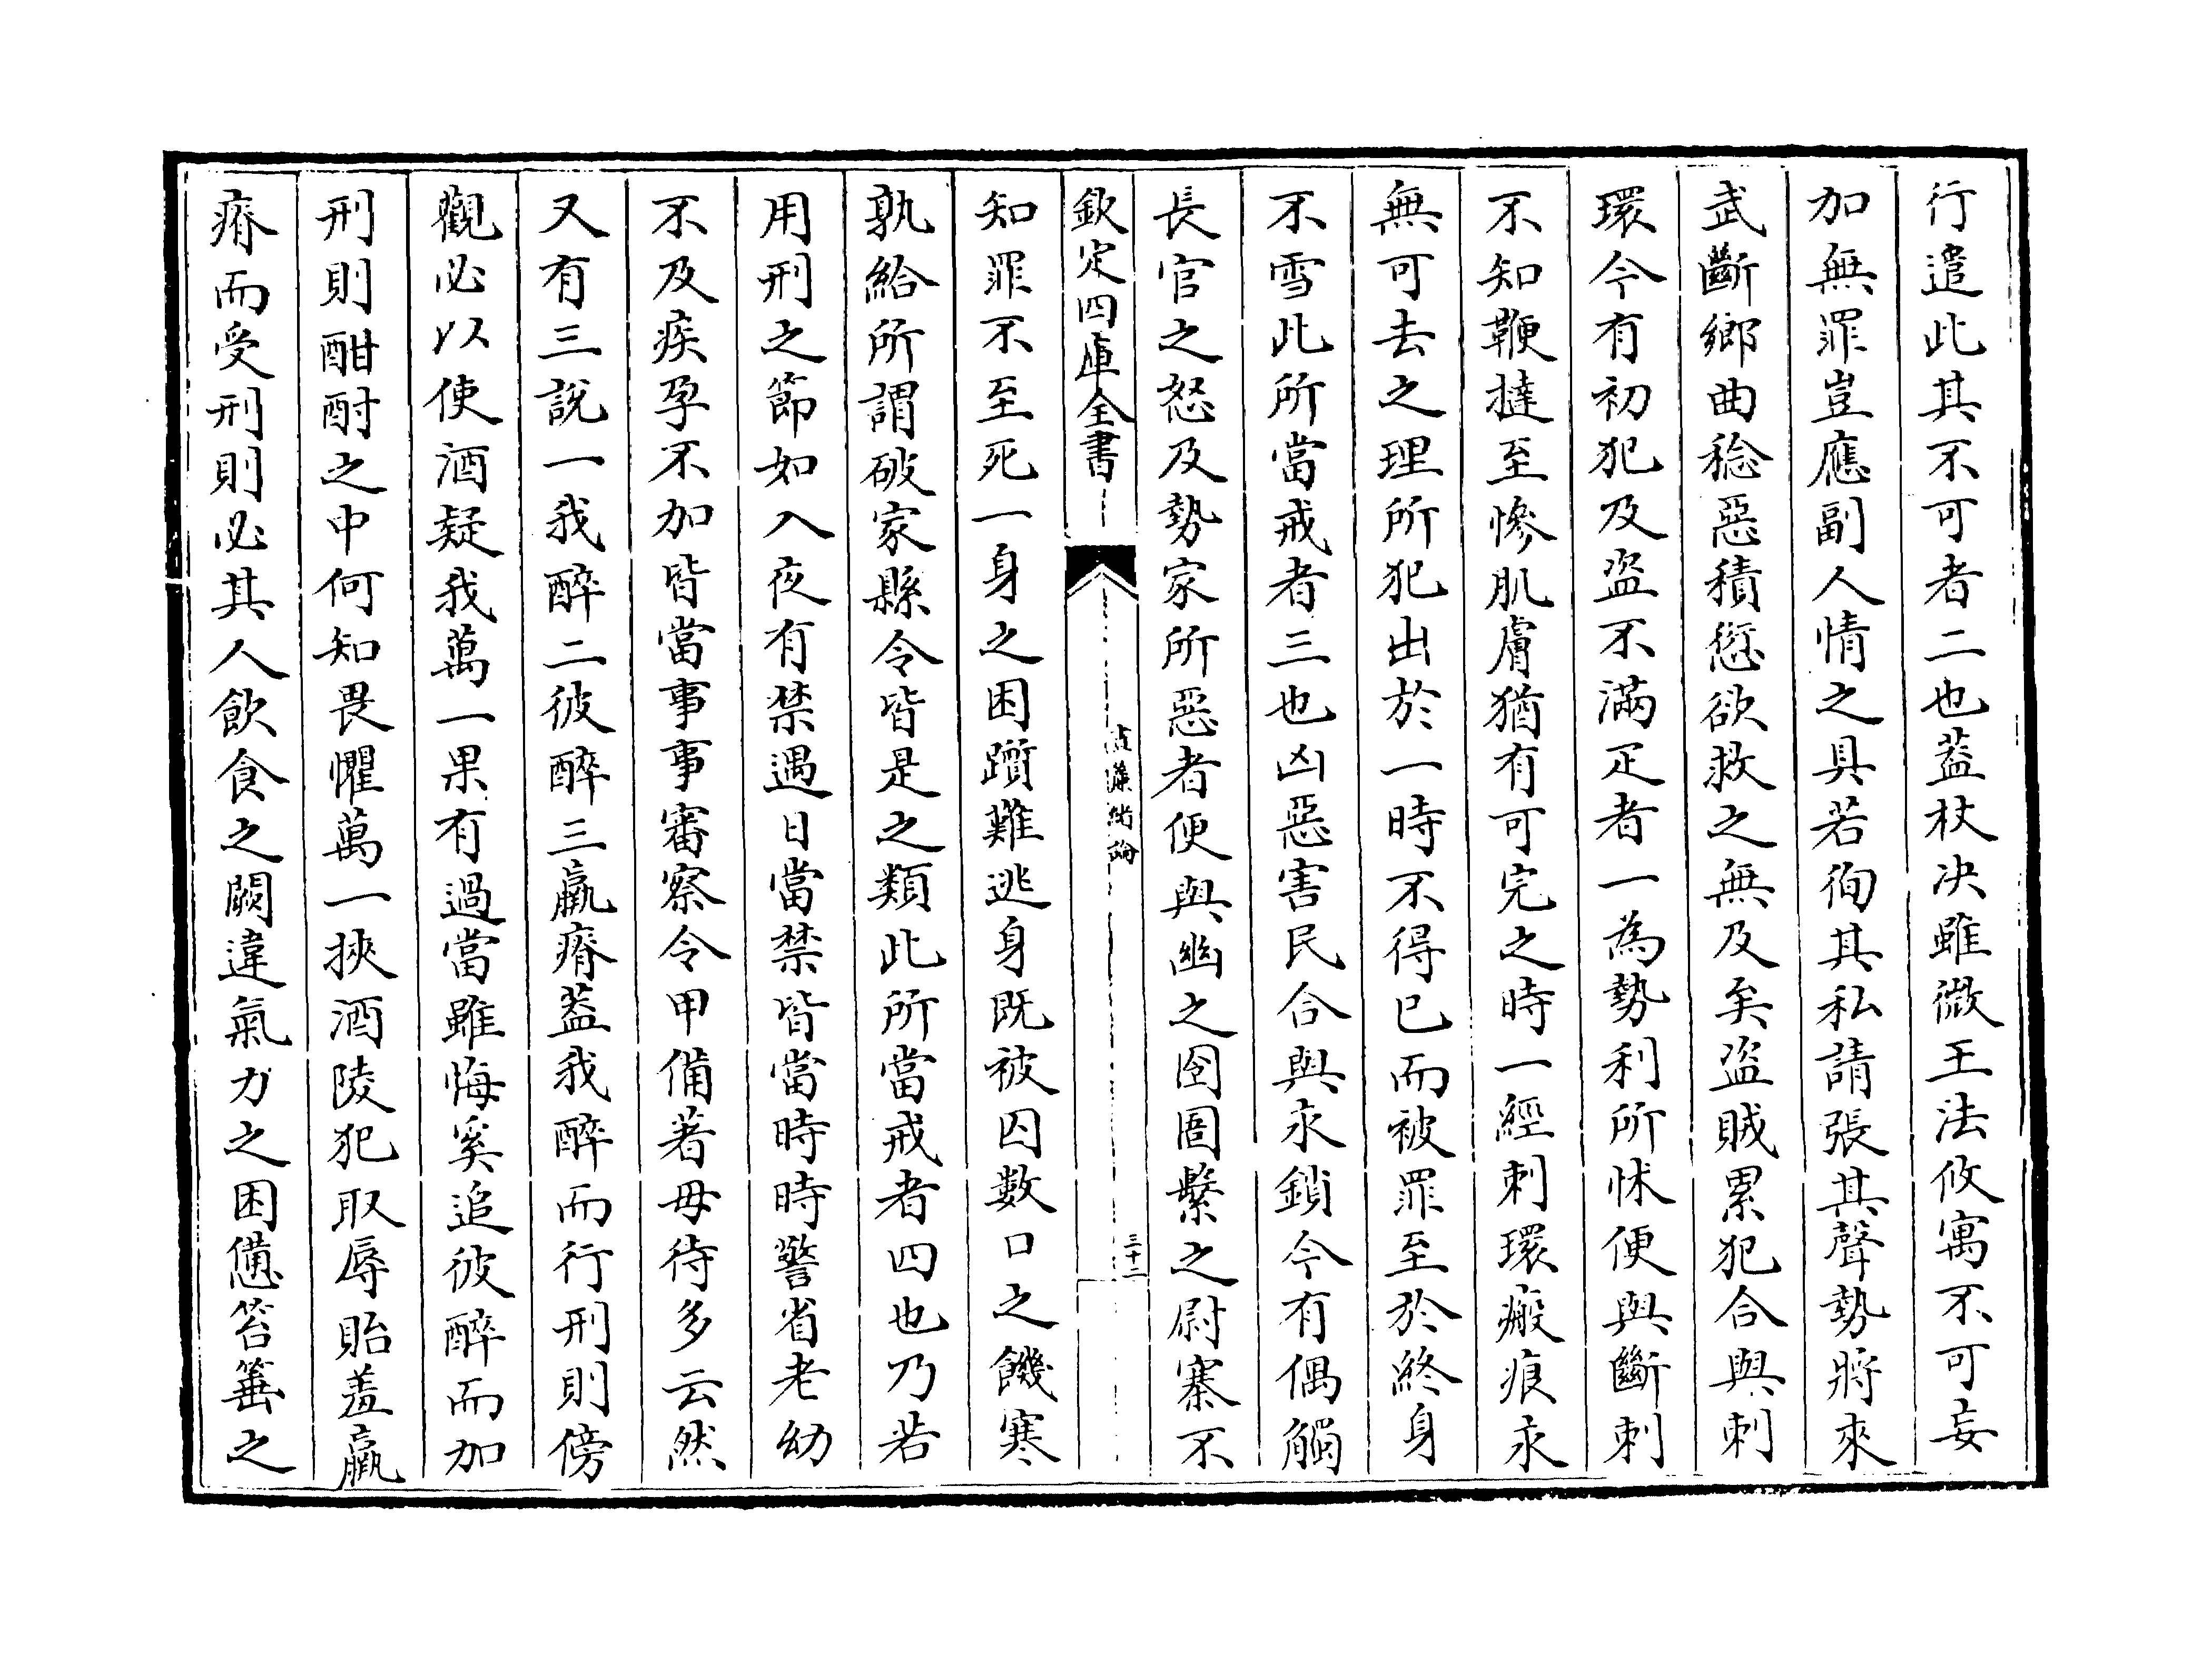 行遣此其不可者二也蓋杖決雖微王法攸寓不可妄
加無罪豈應副人情之具若徇其私請張其聲勢將來
武斷鄉曲稔惡積愆欲救之無及矣盜賊累犯合與刺
環今有初犯及盜不滿疋者一為勢利所怵便與斷刺
不知鞭撻至慘肌膚猶有可完之時一經刺環瘢痕永
無可去之理所犯出於一時不得已而被罪至於終身
不雪此所當戒者三也凶惡害民合與永鎖今有偶觸
長官之怒及勢家所惡者便與幽之囹圄繫之尉寨不
欽定四庫全書
晝簾緒論
三十二
知罪不至死一身之困躓難逃身既被囚數口之饑寒
孰給所謂破家縣令皆是之類此所當戒者四也乃若
用刑之節如入夜有禁遇日當禁皆當時時警省老幼
不及疾孕不加皆當事事審察令甲備著毋待多云然
又有三說一我醉二彼醉三羸瘠蓋我醉而行刑則傍
觀必以使酒疑我萬一果有過當雖悔奚追彼醉而加
刑則酣酎之中何知畏懼萬一挾酒陵犯取辱貽羞羸
瘠而受刑則必其人飲食之闕違氣力之困憊笞箠之